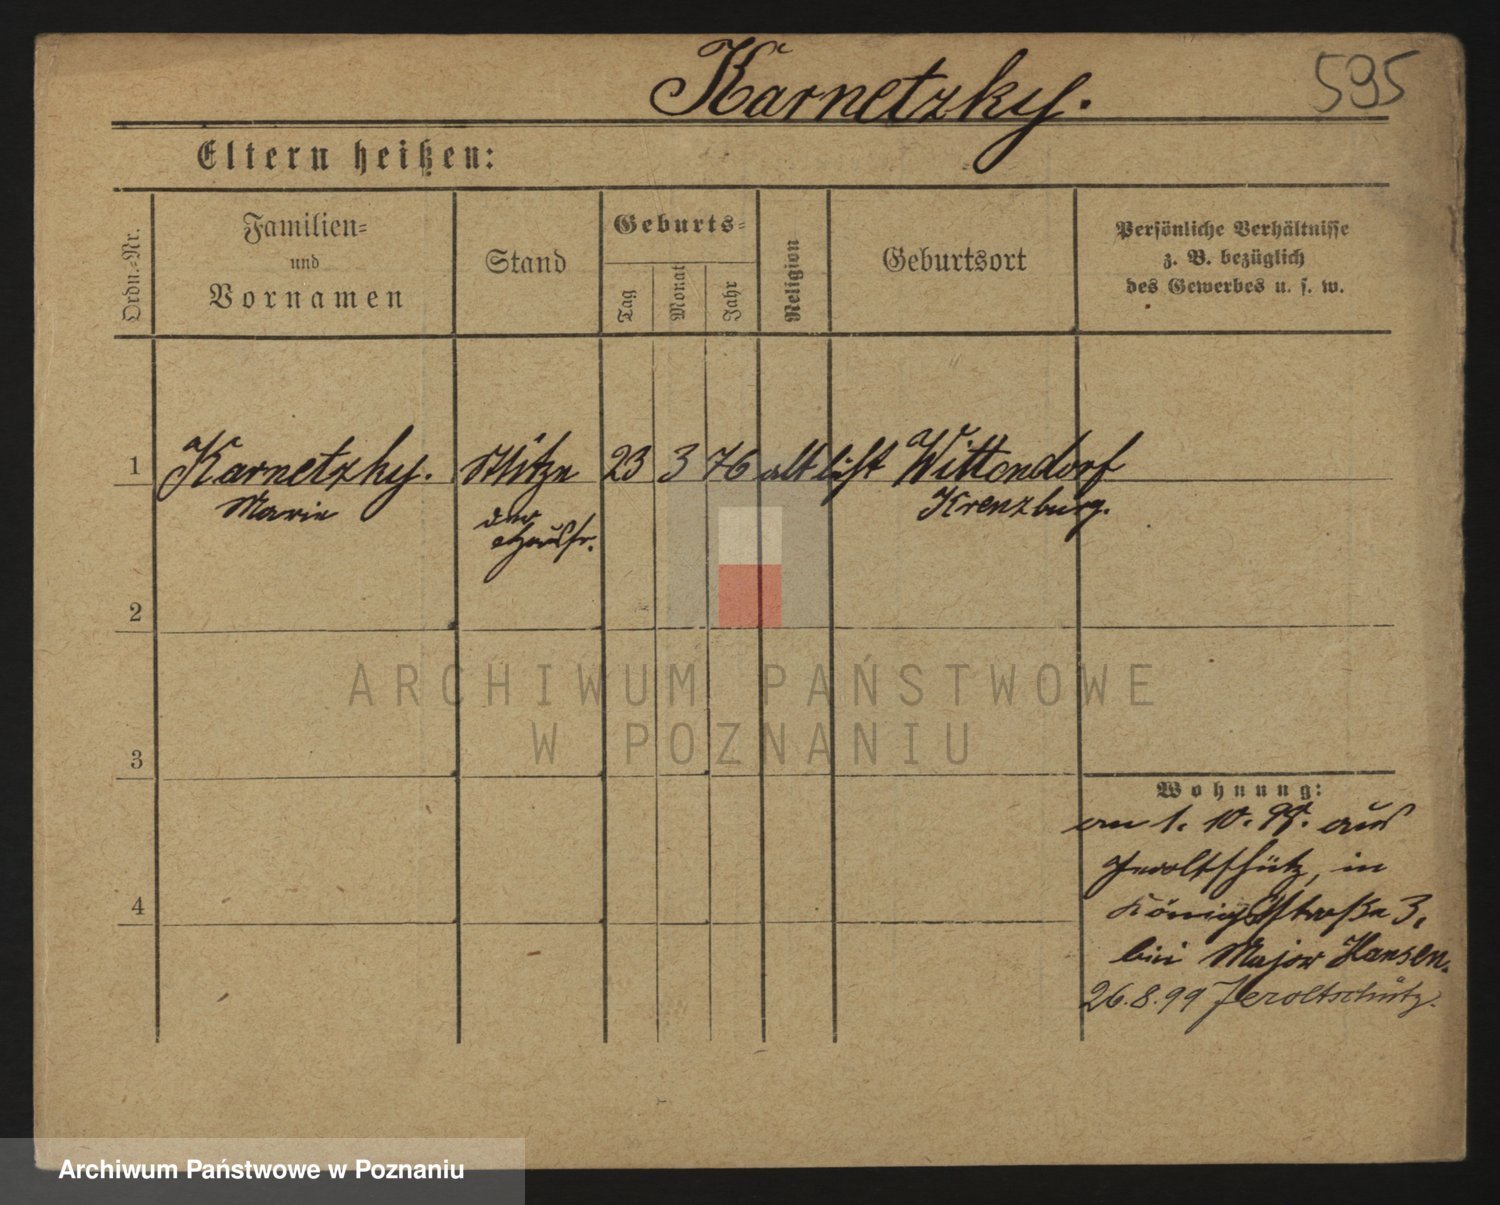 Karnetzky.
595
Eltern heißen:
Ordn.-Nr.
Familien-
und
Vornamen
Stand
Geburts-
Tag
Monat
Jahr
Religion
Geburtsort
Persönliche Verhältnisse
z. B. bezüglich
des Gewerbes u. s. w.
1 Karnetzky. Stütze 23 3 76 altluth Wittendorf
Marie der Hausfr. Kreuzburg.
2
3
4
Wohnung:
am 1. 10. 97. aus
Jeroltschütz, in
Königsstraße 3,
bei Major Hansen.
26.8.99 Jeroltschütz.
ARCHIWUM PAŃSTWOWE
W POZNANIU
Archiwum Państwowe w Poznaniu